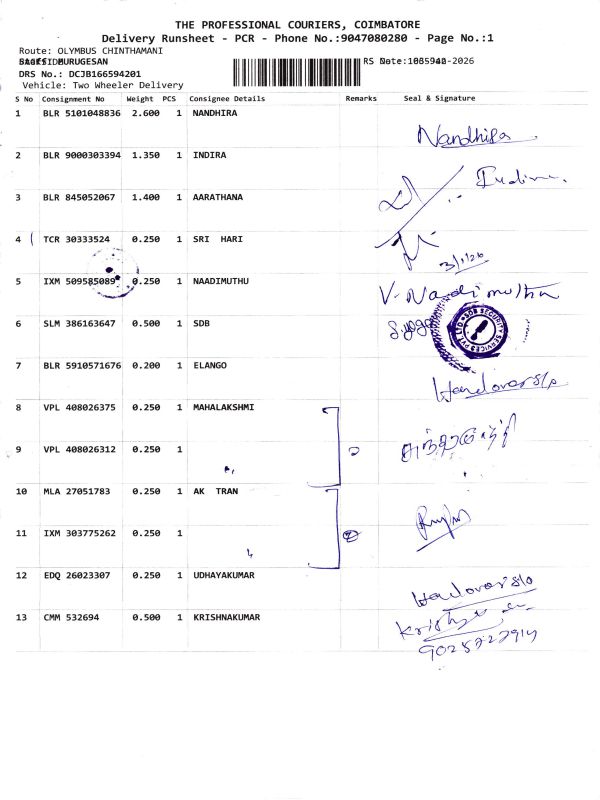 THE PROFESSIONAL COURIERS, COIMBATORE
Delivery Runsheet - PCR - Phone No.:9047080280 - Page No.:1
Route: OLYMBUS CHINTHAMANI
DRS No.: DCJB166594201
Vehicle: Two Wheeler Delivery
S No Consignment No Weight PCS Consignee Details Remarks Seal & Signature
1 BLR 5101048836 2.600 1 NANDHIRA Nandhira
2 BLR 9000303394 1.350 1 INDIRA
3 BLR 845052067 1.400 1 AARATHANA
4 TCR 30333524 0.250 1 SRI HARI 3/1/26
5 IXM 509585089 0.250 1 NAADIMUTHU V. Naadimuthu
6 SLM 386163647 0.500 1 SDB S.yoga SDB SECURITY SERVICES PVT LTD
7 BLR 5910571676 0.200 1 ELANGO Handover s/o
8 VPL 408026375 0.250 1 MAHALAKSHMI
9 VPL 408026312 0.250 1
10 MLA 27051783 0.250 1 AK TRAN
11 IXM 303775262 0.250 1
12 EDQ 26023307 0.250 1 UDHAYAKUMAR Handover s/o
13 CMM 532694 0.500 1 KRISHNAKUMAR